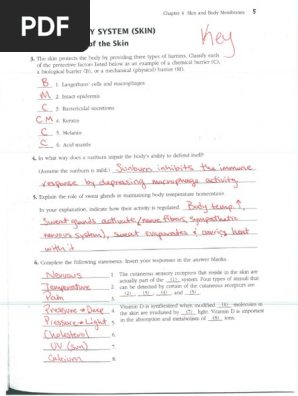 PDF
Chapter 4 Skin and Body Membranes 5
Y SYSTEM (SKIN)
Key
of the Skin
3. The skin protects the body by providing three types of barriers. Classify each
of the protective factors listed below as an example of a chemical barrier (C),
a biological barrier (B), or a mechanical (physical) barrier (M).
B 1. Langerhans' cells and macrophages
M 2. Intact epidermis
C 3. Bactericidal secretions
C M 4. Keratin
C 5. Melanin
C 6. Acid mantle
4. In what way does a sunburn impair the body's ability to defend itself?
(Assume the sunburn is mild.) Sunburn inhibits the immune
response by depressing macrophage activity
5. Explain the role of sweat glands in maintaining body temperature homeostasis.
In your explanation, indicate how their activity is regulated. Body temp ↑,
sweat glands activate (nerve fibers, sympathetic
nervous system), sweat evaporates & carries heat
with it
6. Complete the following statements. Insert your responses in the answer blanks.
Nervous 1. The cutaneous sensory receptors that reside in the skin are
Temperature 2. actually part of the (1) system. Four types of stimuli that
Pain 3. can be detected by certain of the cutaneous receptors are
(2), (3), (4), and (5).
Pressure → Deep 4.
Pressure → Light 5. Vitamin D is synthesized when modified (6) molecules in
Cholesterol 6. the skin are irradiated by (7) light. Vitamin D is important
UV (Sun) 7. in the absorption and metabolism of (8) ions.
Calcium 8.